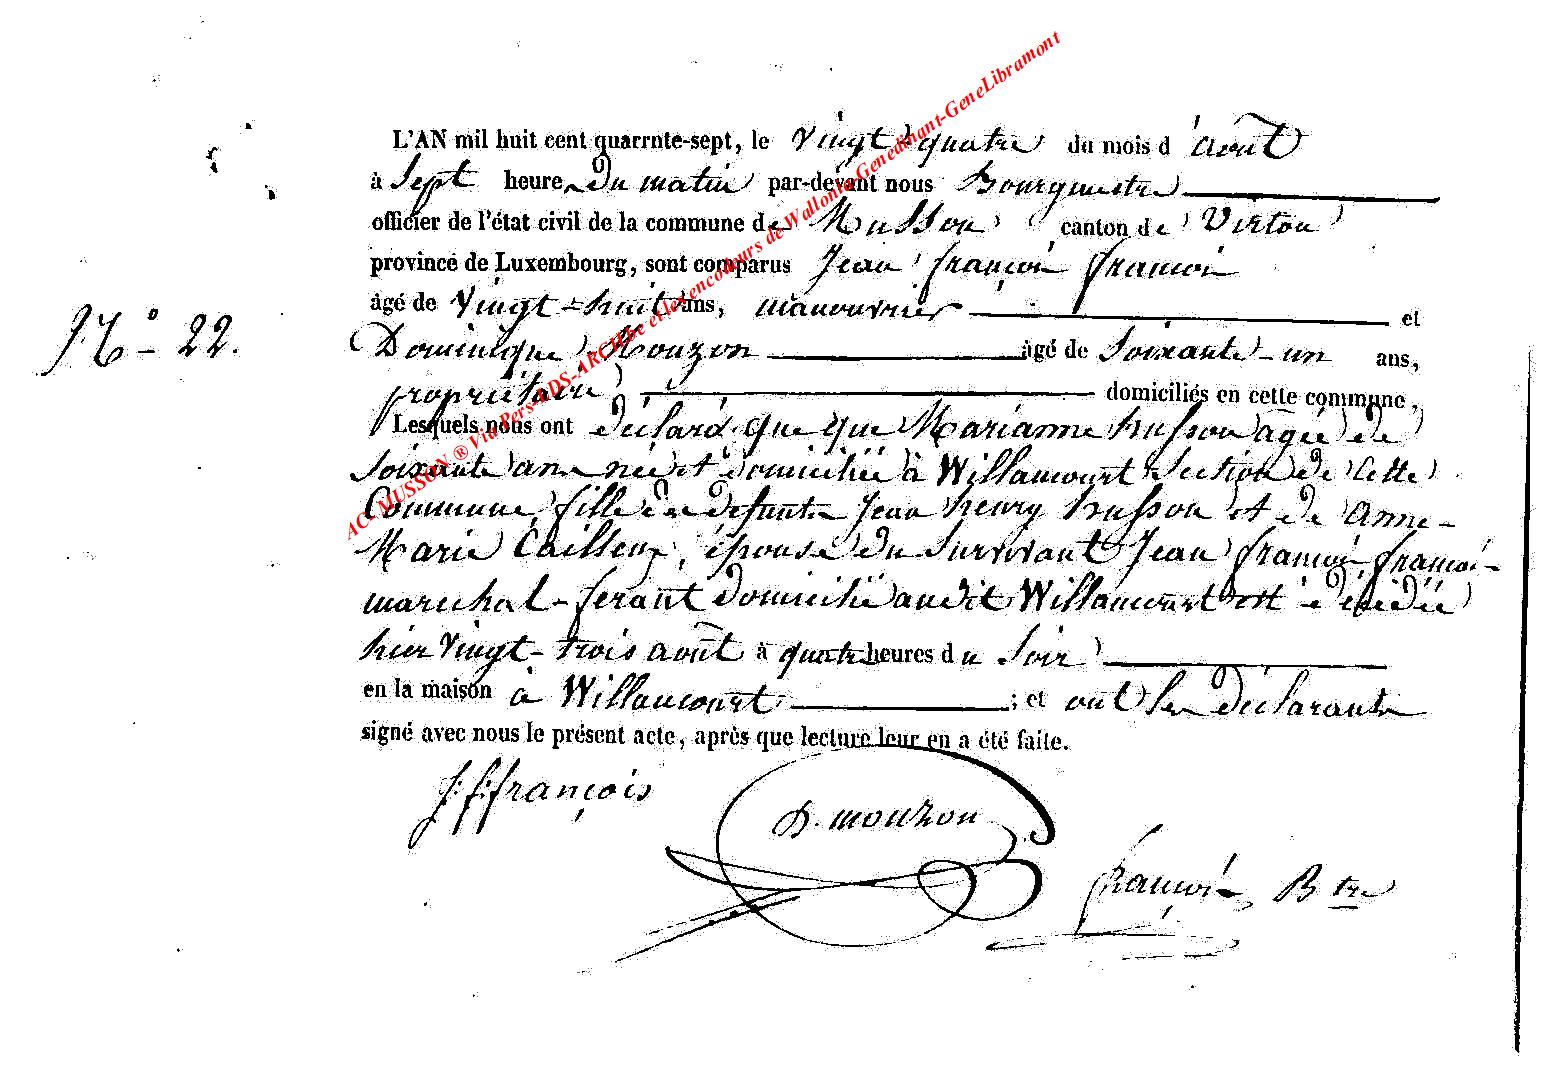 L'AN mil huit cent quarrnte-sept, le vingt quatre du mois d'août
à Sept heures du matin par-devant nous Bourgmestre
officier de l'état civil de la commune de Musson canton de Virton
province de Luxembourg, sont comparus Jean françois françois
âgé de Vingt-huit ans, manouvrier et
N° 22.
Dominique Mouzon âgé de Soixante-un ans,
propriétaire domiciliés en cette commune,
Lesquels nous ont déclaré que que Marianne husson agée de
soixante ans née et domiciliée à Willancourt section de cette
Commune, fille de defunts Jean henry husson et de anne-
Marie Cailleux, épouse du Survivant Jean françois françois
marechal-ferant domicilié audit Willancourt est décédée
hier Vingt-trois août à quatre heures du Soir
en la maison à Willancourt ; et ont les déclarants
signé avec nous le présent acte, après que lecture leur en a été faite.
J. f. françois
D. mouzon
françois Btre
AC. MUSSON ® Via Pers-ADS-ARCHive et les encodeurs de Wallonia-Genedinant-GeneLibramont